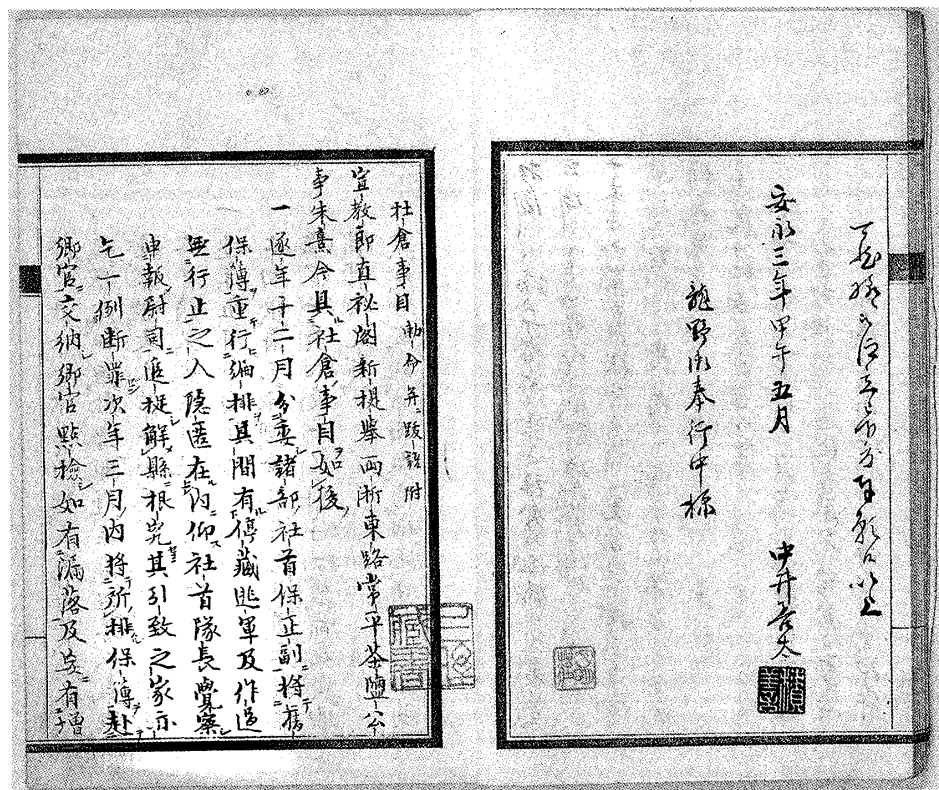 安永三年甲午五月 中井善太
龍野御奉行中様
社倉事目 勅命并ニ跋語附
宣教郎直祕閣新提舉兩浙東路常平茶鹽公
事朱熹今具社倉事目如後
一逐年十二月分委諸部社首保正副將舊
保簿重行編排其間有停藏逃軍及作過
無行止之人隱匿在內仰社首隊長覺察
申報尉司追捉解縣根究其引致之家亦
乞一例斷罪次年三月內將所排保簿赴
鄉官交納鄉官點檢如有漏落及妄有增